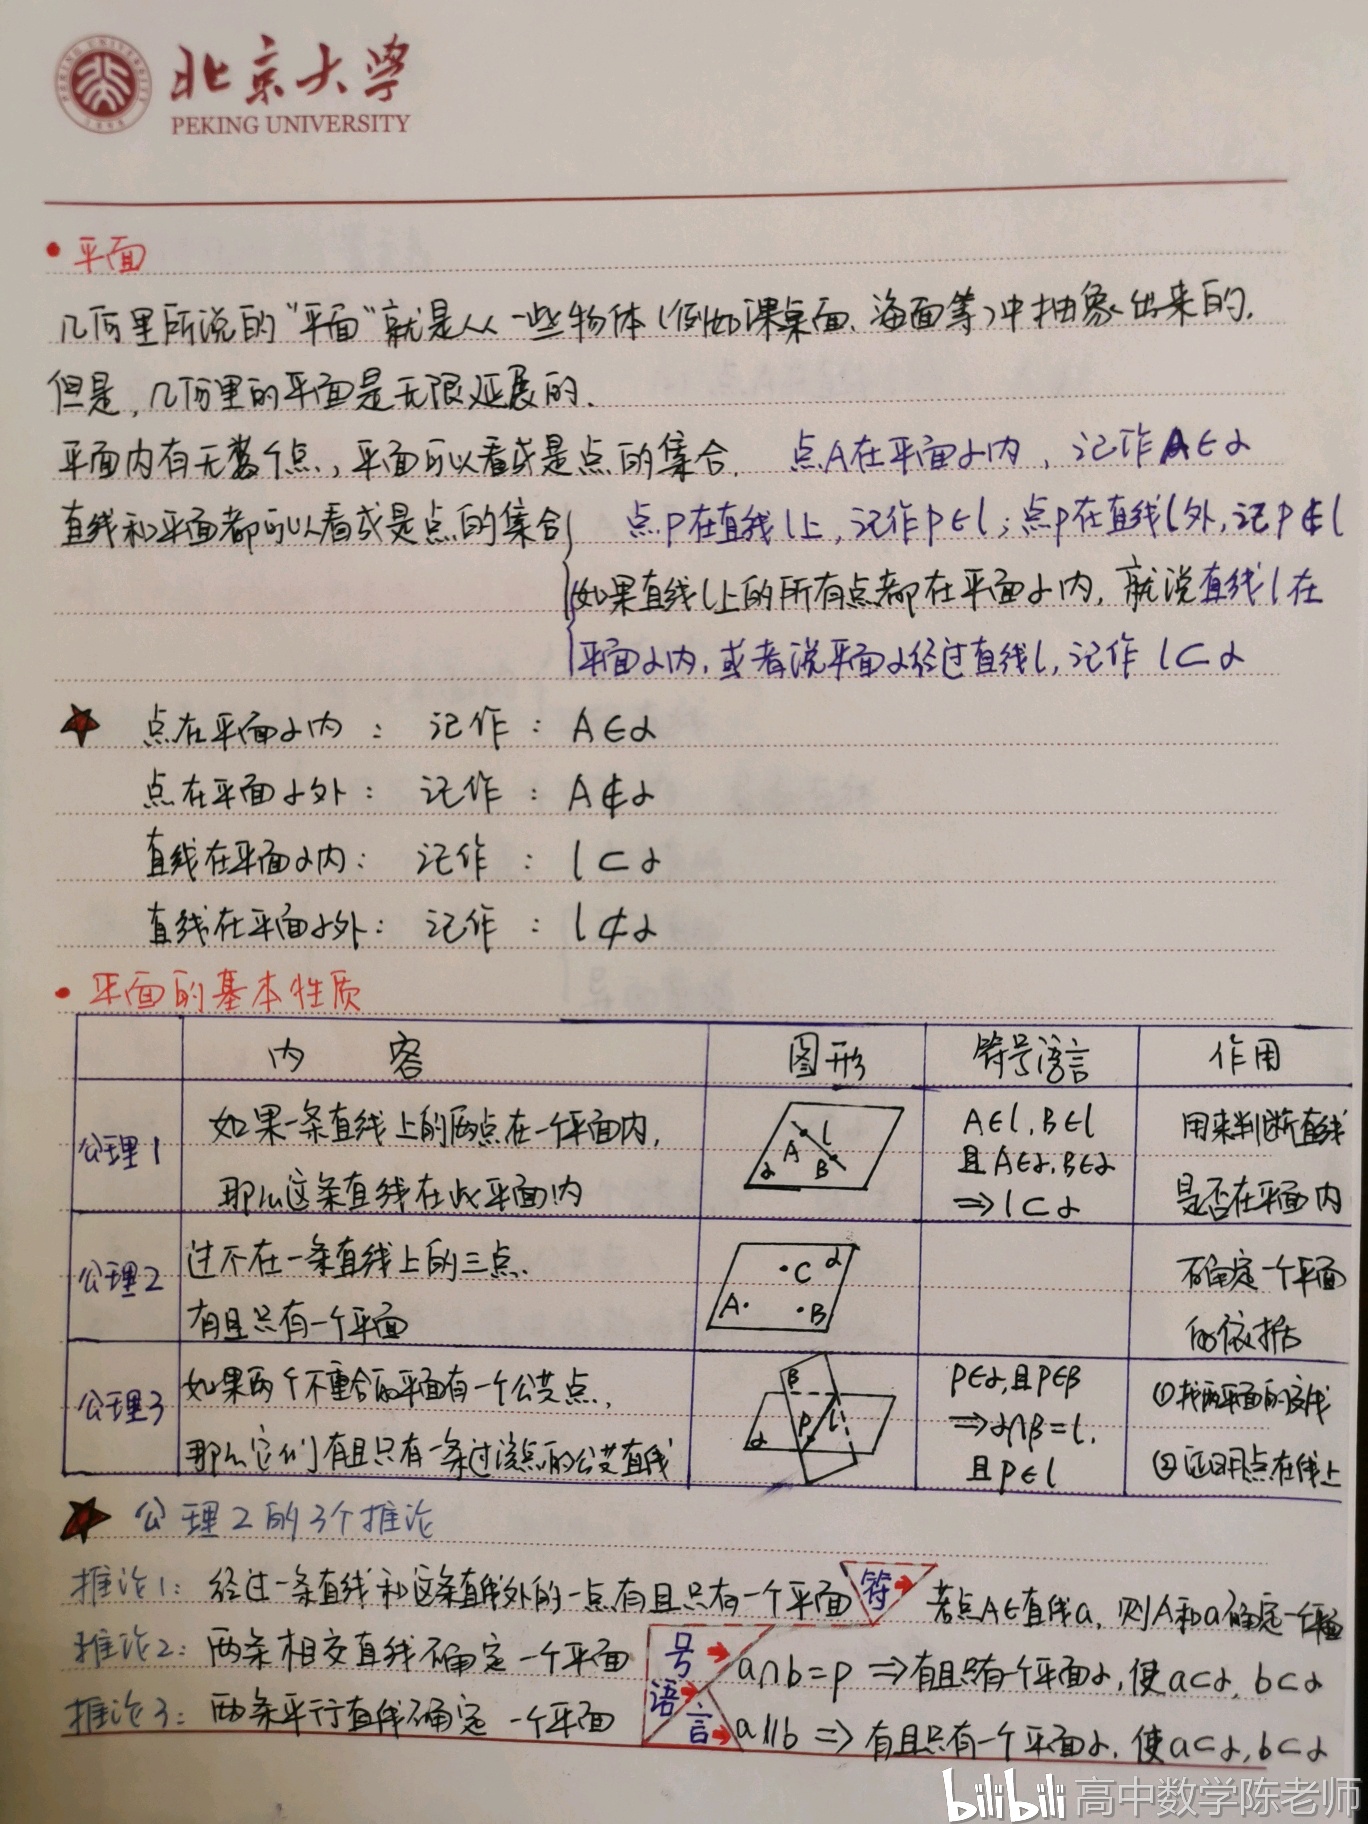 北京大学
PEKING UNIVERSITY
• 平面
几何里所说的“平面”就是从一些物体(例如课桌面、海面等)中抽象出来的.
但是,几何里的平面是无限延展的.
平面内有无数个点,平面可以看成是点的集合. 点A在平面α内,记作A∈α
直线和平面都可以看成是点的集合 点P在直线l上,记作P∈l;点P在直线l外,记P∉l
如果直线l上的所有点都在平面α内,就说直线l在
平面α内,或者说平面α经过直线l,记作 l⊂α
★ 点在平面α内: 记作: A∈α
点在平面α外: 记作: A∉α
直线在平面α内: 记作: l⊂α
直线在平面α外: 记作: l⊄α
• 平面的基本性质
内容 图形 符号语言 作用
公理1 如果一条直线上的两点在一个平面内,
那么这条直线在此平面内
α A B l
A∈l,B∈l
且A∈α,B∈α
⇒l⊂α
用来判断直线
是否在平面内
公理2 过不在一条直线上的三点.
有且只有一个平面
A· ·B ·C α
确定一个平面
的依据
公理3 如果两个不重合的平面有一个公共点,
那么它们有且只有一条过该点的公共直线
β α P l
P∈α,且P∈β
⇒α∩β=l.
且P∈l
①找两平面的交线
②证明点在线上
★ 公理2的3个推论
推论1: 经过一条直线和这条直线外的一点有且只有一个平面 符 若点A∈直线a,则A和a确定一个平面
推论2: 两条相交直线确定一个平面 号 a∩b=P⇒有且只有一个平面α,使a⊂α,b⊂α
推论3: 两条平行直线确定一个平面 语言 a∥b⇒有且只有一个平面α,使a⊂α,b⊂α
bilibili 高中数学陈老师